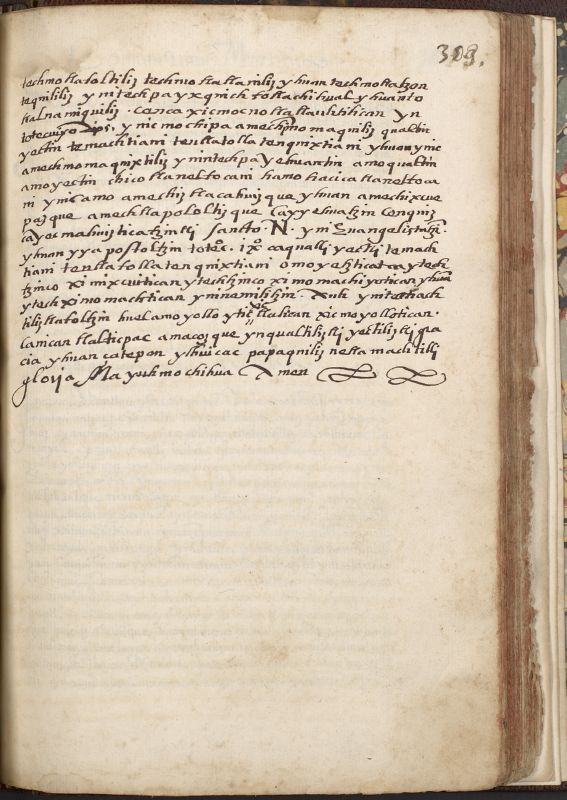 309.
techmotlatoltilij techmotlatlamilij yhuan techmotlatzon
tequililij yn itechpa yxquich totlachihual yhuan to
tlalnamiquiliz. cenca ximocnotlatlauhtilican yn
totecuiyo Dios, ynic mochipa amechmomaquiliz qualtin
yectin temachtiani tentlatollatenquixtiani yhuan ynic
amechmomaquixtiliz yn intechpa yehuantin amo qualtin
amo yectin chico tlaneltocani hamo tlacica tlaneltoca
ni ynic amo amechiztlacahuizque yhuan amechixcue
pazque amechtlapololtizque Ca yyehuatzin cenquiz
ca yecmahuizticatzintli Santo N. yn Euangelistatzin.
yhuan yyapostoltzin toteo. Jx͞o ca qualli yectli temach
tiani tentlatollatenquixtiani omoyetzticatca ytech
tzinco ximixcuitican ytechtzinco ximomachiyotican yhua
ytech ximomachtican yn inemilitzin. Auh yn itemach
tiliztlatoltzin huel amoyollo ytic tlalican xicmoyollotican.
Ca nican tlalticpac amacozque yn qualtiliztli yectiliztli gra
cia yhuan çatepan ylhuicac papaquiliz netlamachtilli
gloria Ma yuh mochihua Amen